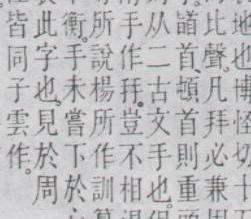 地也博怪切十
比聲凡拜必兼
首頓首則重
从二古文手也
手作豈不相
所說楊所作訓
衡手未嘗下於
此字也見於周
皆同子雲作